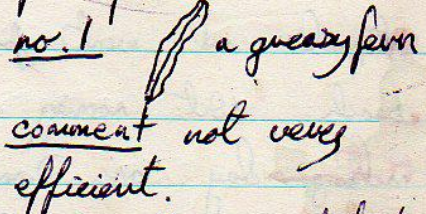 no. 1 a greasy fern
comment not very
efficient.